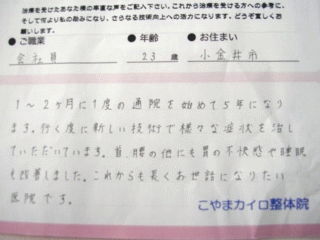 治療を受けたあなた様の率直な声をご記入下さい。これから治療を受ける方への参考に、
そして何より私の励みになり、さらなる技術向上への活力になります。どうぞ宜しくお
願いします。
●ご職業 ●年齢 ●お住まい
会社員 23歳 小金井市
1~2ヶ月に1度の通院を始めて5年になり
ます。行く度に新しい技術で様々な症状を治し
ていただいています。首、腰の他にも胃の不快感や睡眠
も改善しました。これからも長くお世話になりたい
医院です。
こやまカイロ整体院